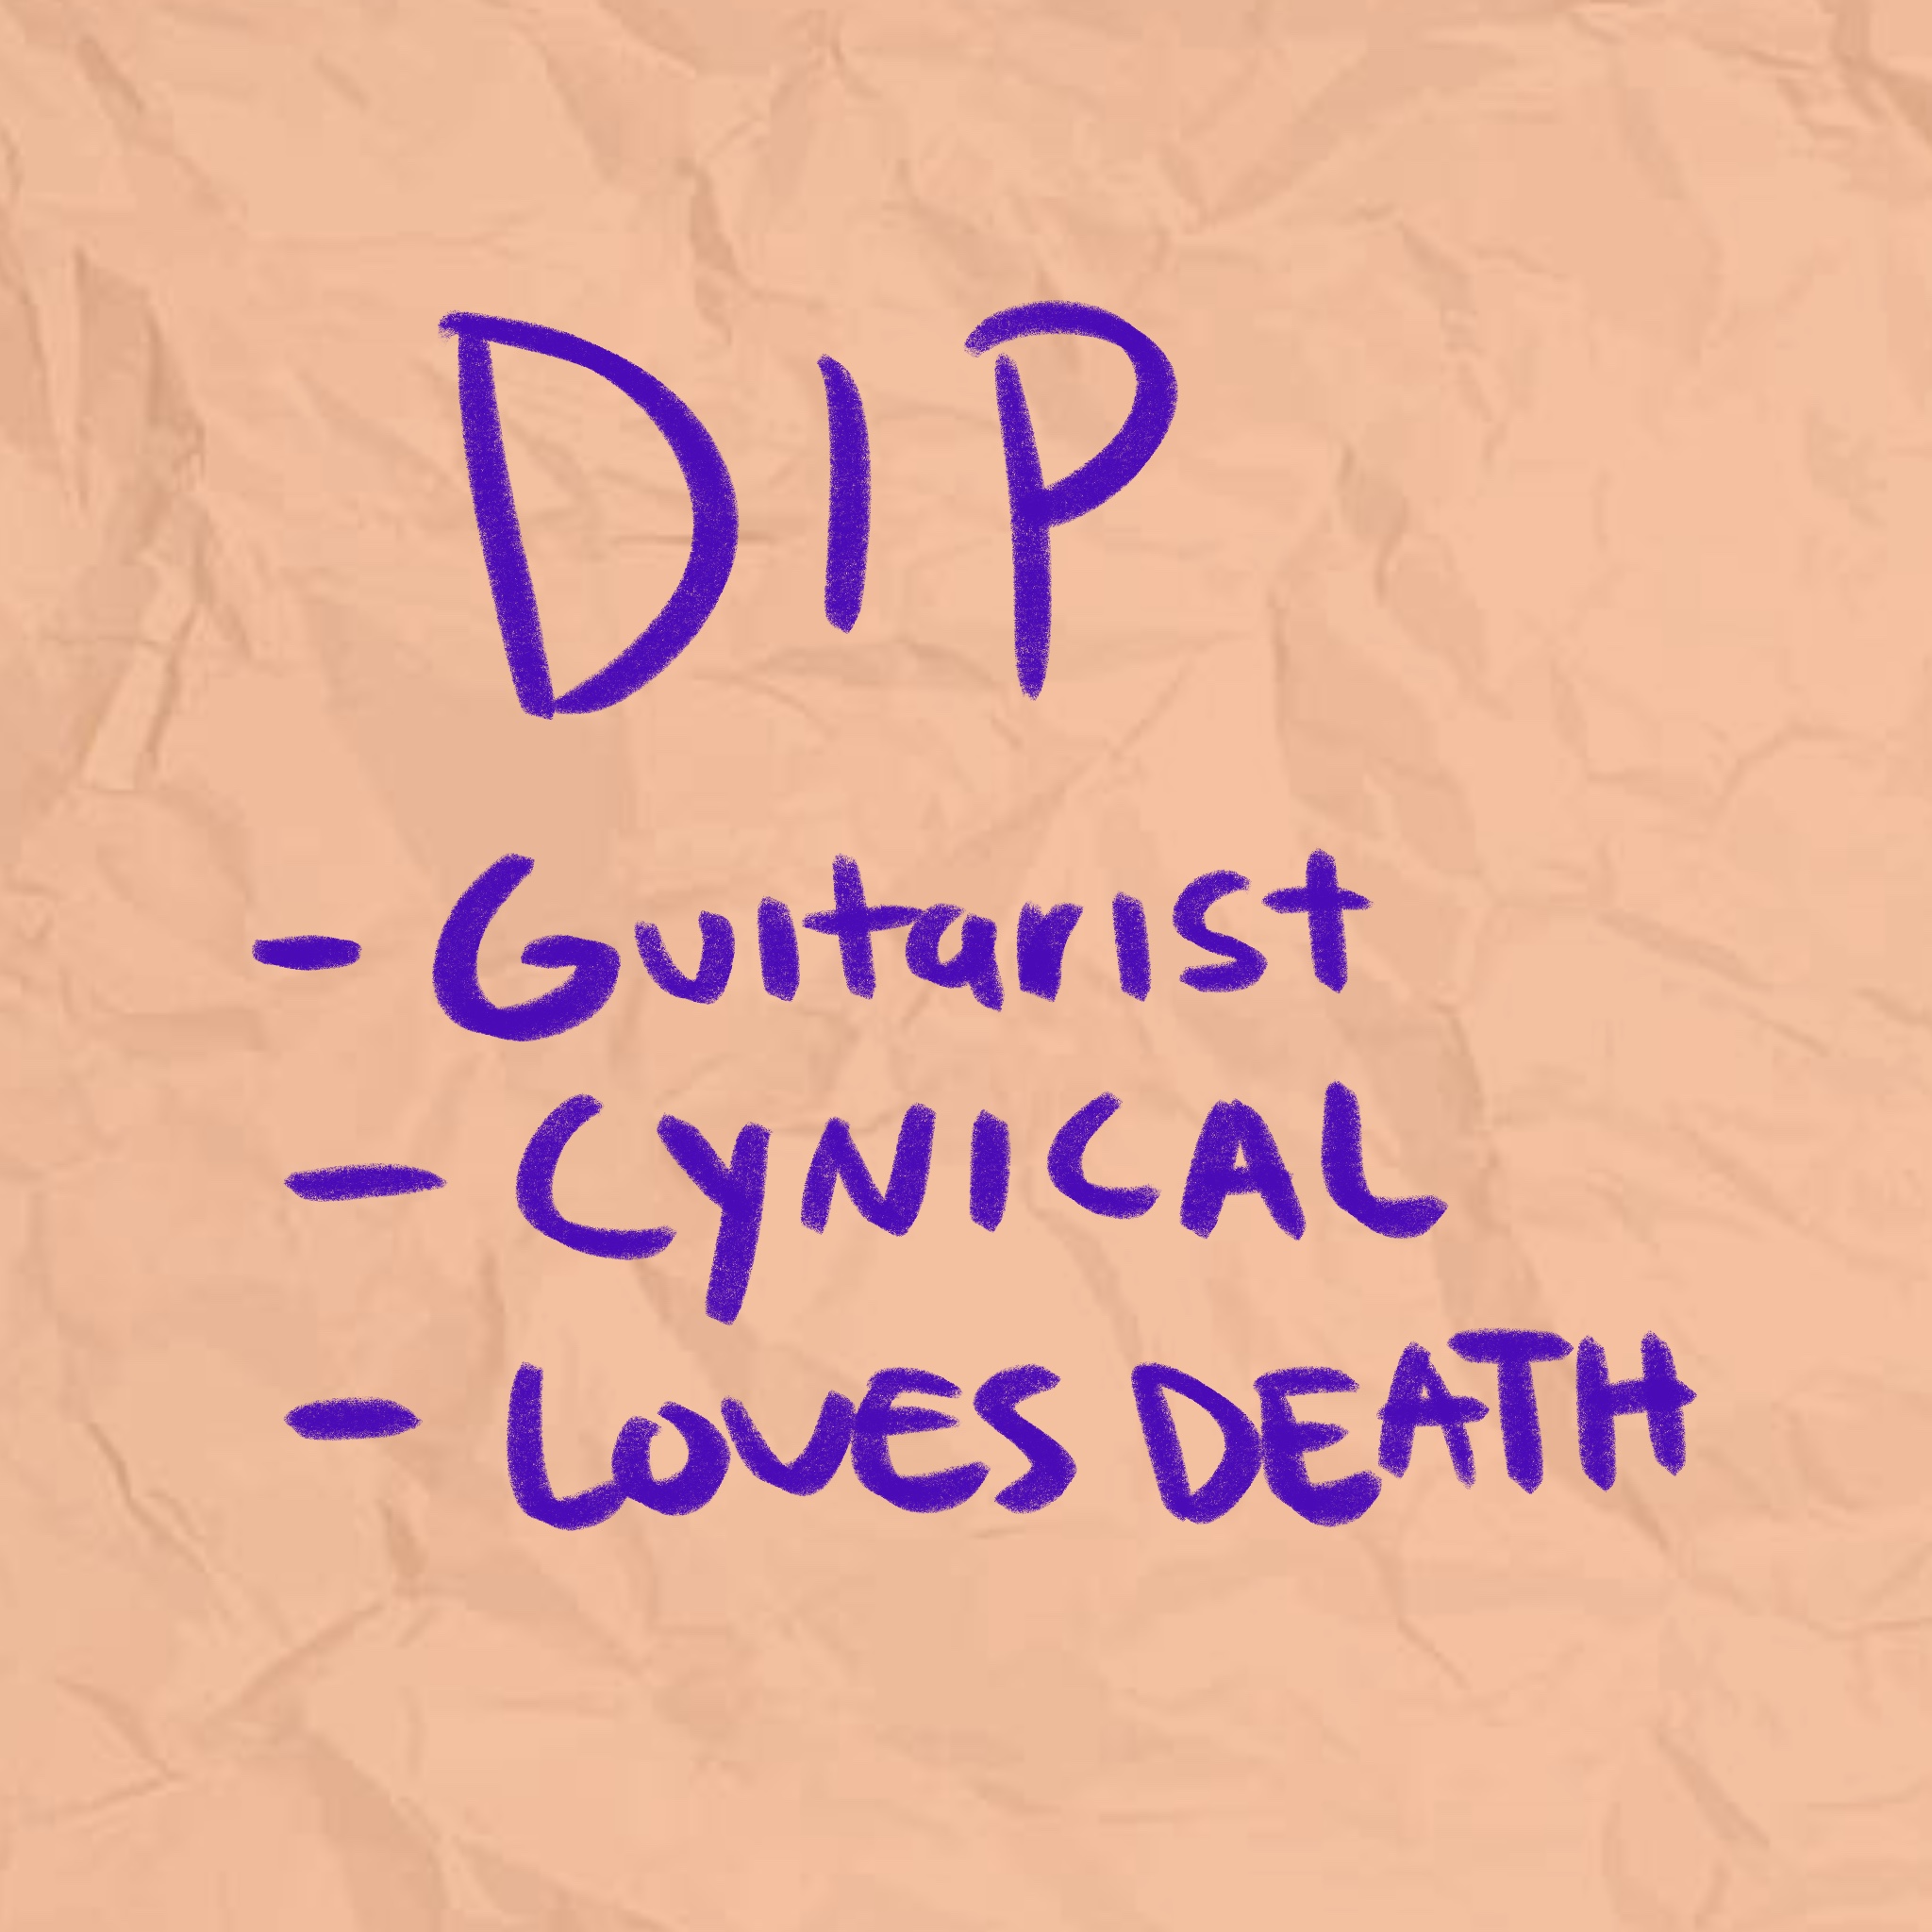 DIP
- Guitarist
- CYNICAL
- LOVES DEATH